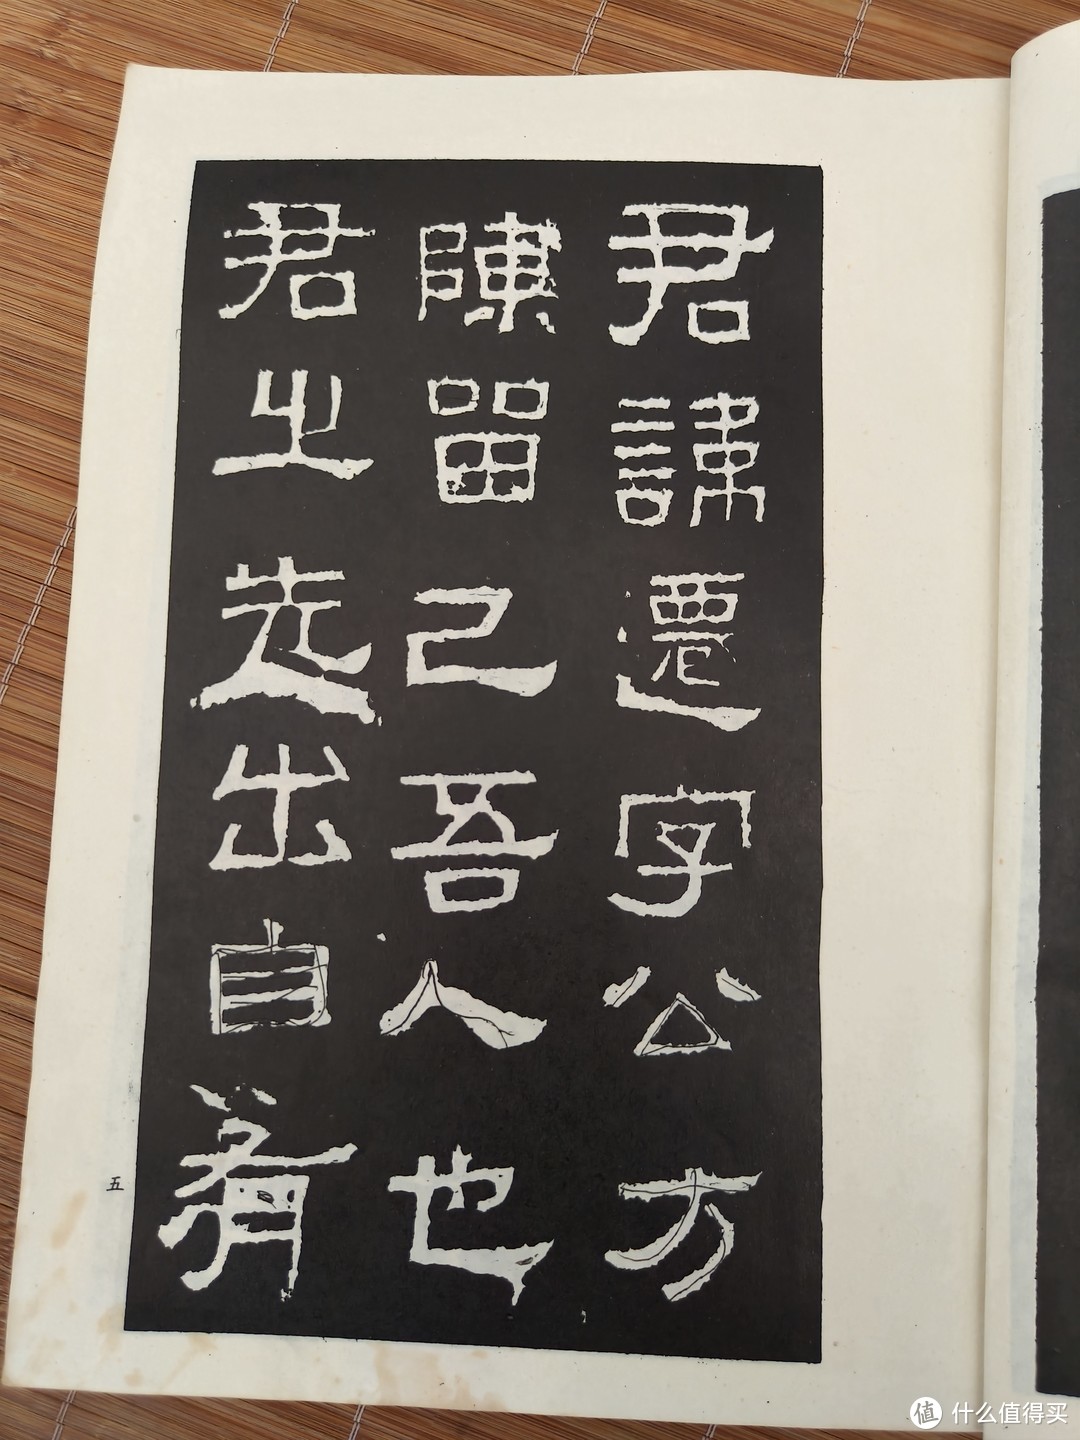 君諱遷字公方
陳留己吾人也
君之先出自有
五
值 什么值得买